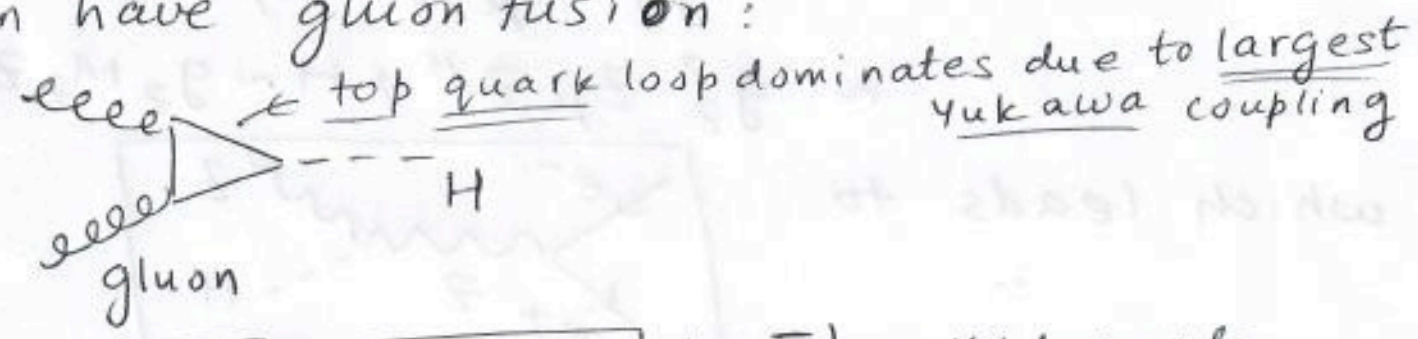 have gluon fusion :
top quark loop dominates due to largest
Yukawa coupling
H
gluon